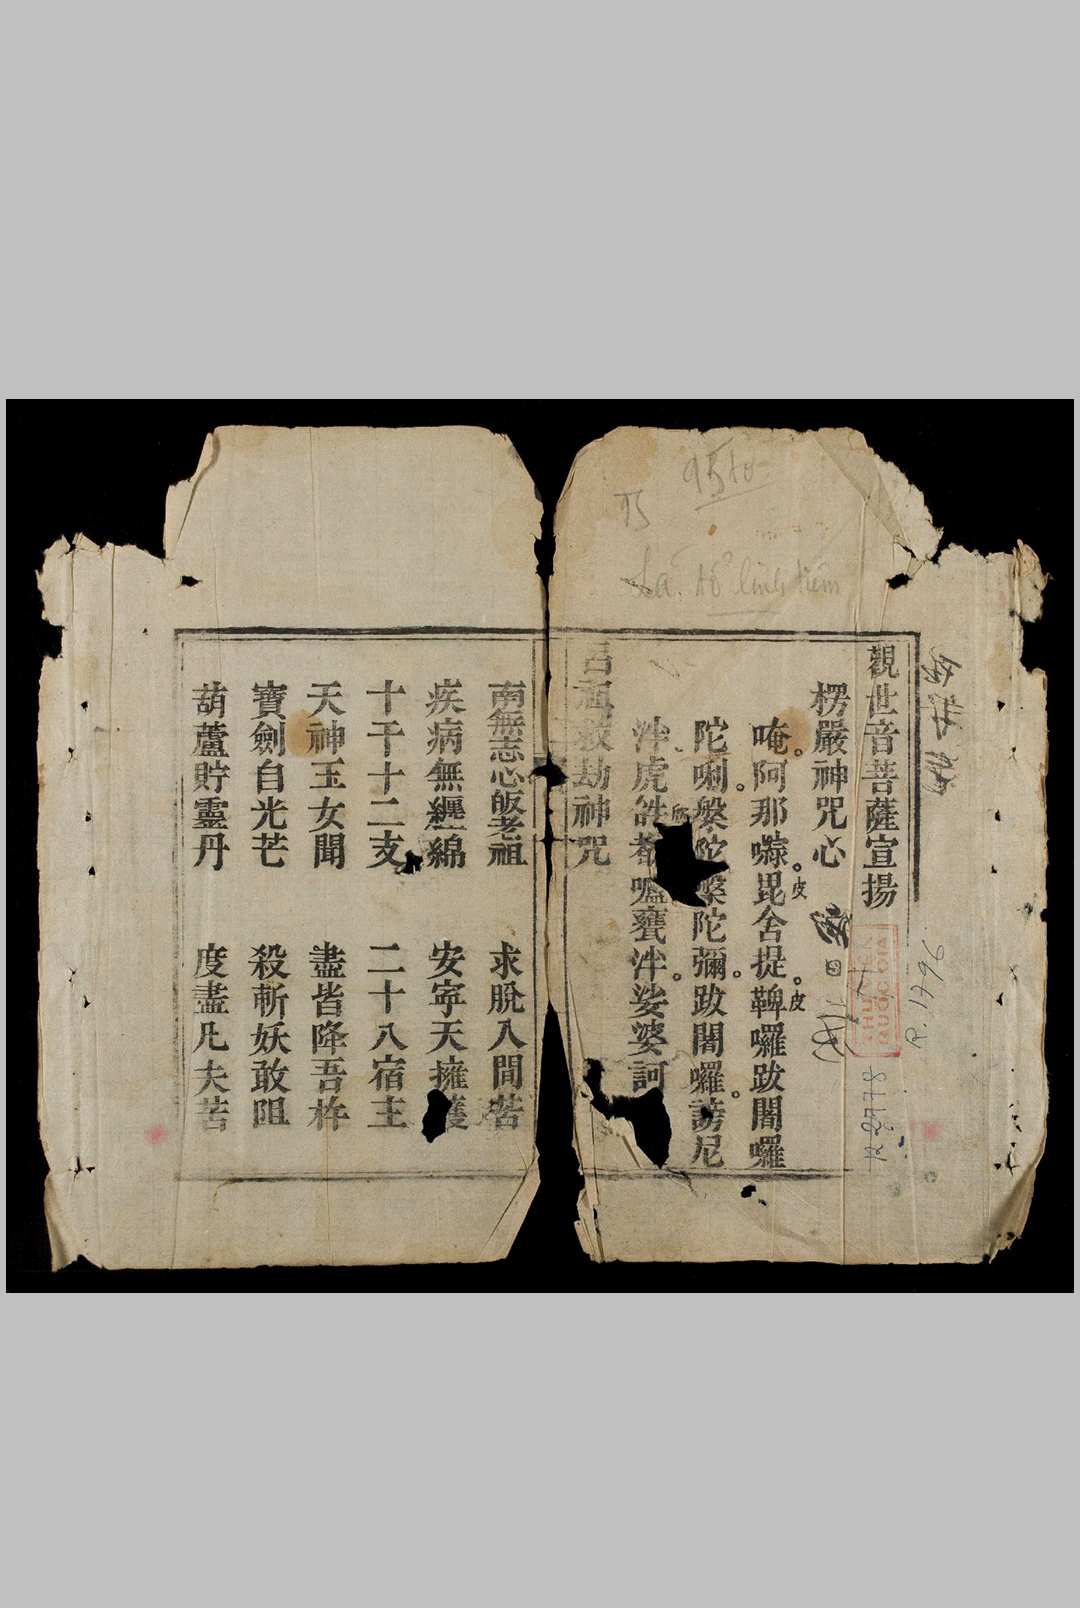 觀世音菩薩宣揚
楞嚴神咒心
唵。阿那㘑。毘舍提。鞞囉跋闍囉
皮
皮
陀唎。槃陀槃陀彌。跋闍囉。謗尼
泮。虎𤙖都嚧甕泮。娑婆訶
呂祖救劫神咒
南無志心皈老祖 求脫人間苦
疾病無纏綿 安寧天擁護
十干十二支 二十八宿主
天神玉女聞 盡皆降吾杵
寶劍自光芒 殺斬妖敢阻
葫蘆貯靈丹 度盡凡夫苦
R.1796
THƯ VIỆN
QUỐC GIA
Lã tổ linh tiêm